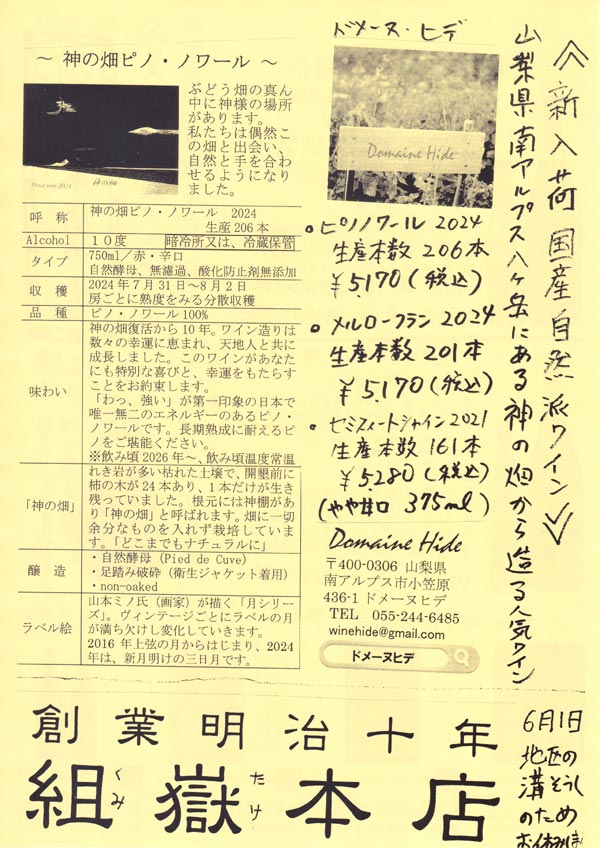 ≪新入荷 国産自然派ワイン≫
山梨県南アルプス八ヶ岳にある神の畑から造る人気ワイン
ドメーヌ・ヒデ
Domaine Hide
・ピノノワール 2024
生産本数 206本
¥5,170(税込)
・メルローフラン 2024
生産本数 201本
¥5,170(税込)
・セミスィートシャイン2021
生産本数 161本
¥5,280(税込)
(やや甘口 375ml)
Domaine Hide
〒400-0306 山梨県
南アルプス市小笠原
436-1 ドメーヌヒデ
TEL 055-244-6485
winehide@gmail.com
ドメーヌヒデ
~ 神の畑ピノ・ノワール ~
Pinot noir 2024 神の畑
ぶどう畑の真ん
中に神様の場所
があります。
私たちは偶然こ
の畑と出会い、
自然と手を合わ
せるようになり
ました。
呼 称 神の畑ピノ・ノワール 2024
生産206本
Alcohol 10度 暗冷所又は、冷蔵保管
タイプ 750ml/赤・辛口
自然酵母、無濾過、酸化防止剤無添加
収 穫 2024年7月31日~8月2日
房ごとに熟度をみる分散収穫
品 種 ピノ・ノワール100%
味わい 神の畑復活から10年。ワイン造りは
数々の幸運に恵まれ、天地人と共に
成長しました。このワインがあなた
にも特別な喜びと、幸運をもたらす
ことをお約束します。
「わっ、強い」が第一印象の日本で
唯一無二のエネルギーのあるピノ・
ノワールです。長期熟成に耐えるピ
ノをご堪能ください。
※飲み頃2026年~、飲み頃温度常温
「神の畑」 れき岩が多い枯れた土壌で、開墾前に
柿の木が24本あり、1本だけが生き
残っていました。根元には神棚があ
り「神の畑」と呼ばれます。畑に一切
余分なものを入れず栽培していま
す。「どこまでもナチュラルに」
醸 造 ・自然酵母(Pied de Cuve)
・足踏み破砕(衛生ジャケット着用)
・non-oaked
ラベル絵 山本ミノ氏(画家)が描く「月シリー
ズ」。ヴィンテージごとにラベルの月
が満ち欠けし変化していきます。
2016年上弦の月からはじまり、2024
年は、新月明けの三日月です。
創業明治十年
組嶽本店
くみ
たけ
6月1日
地区の
溝そうじ
のため
お休みしま